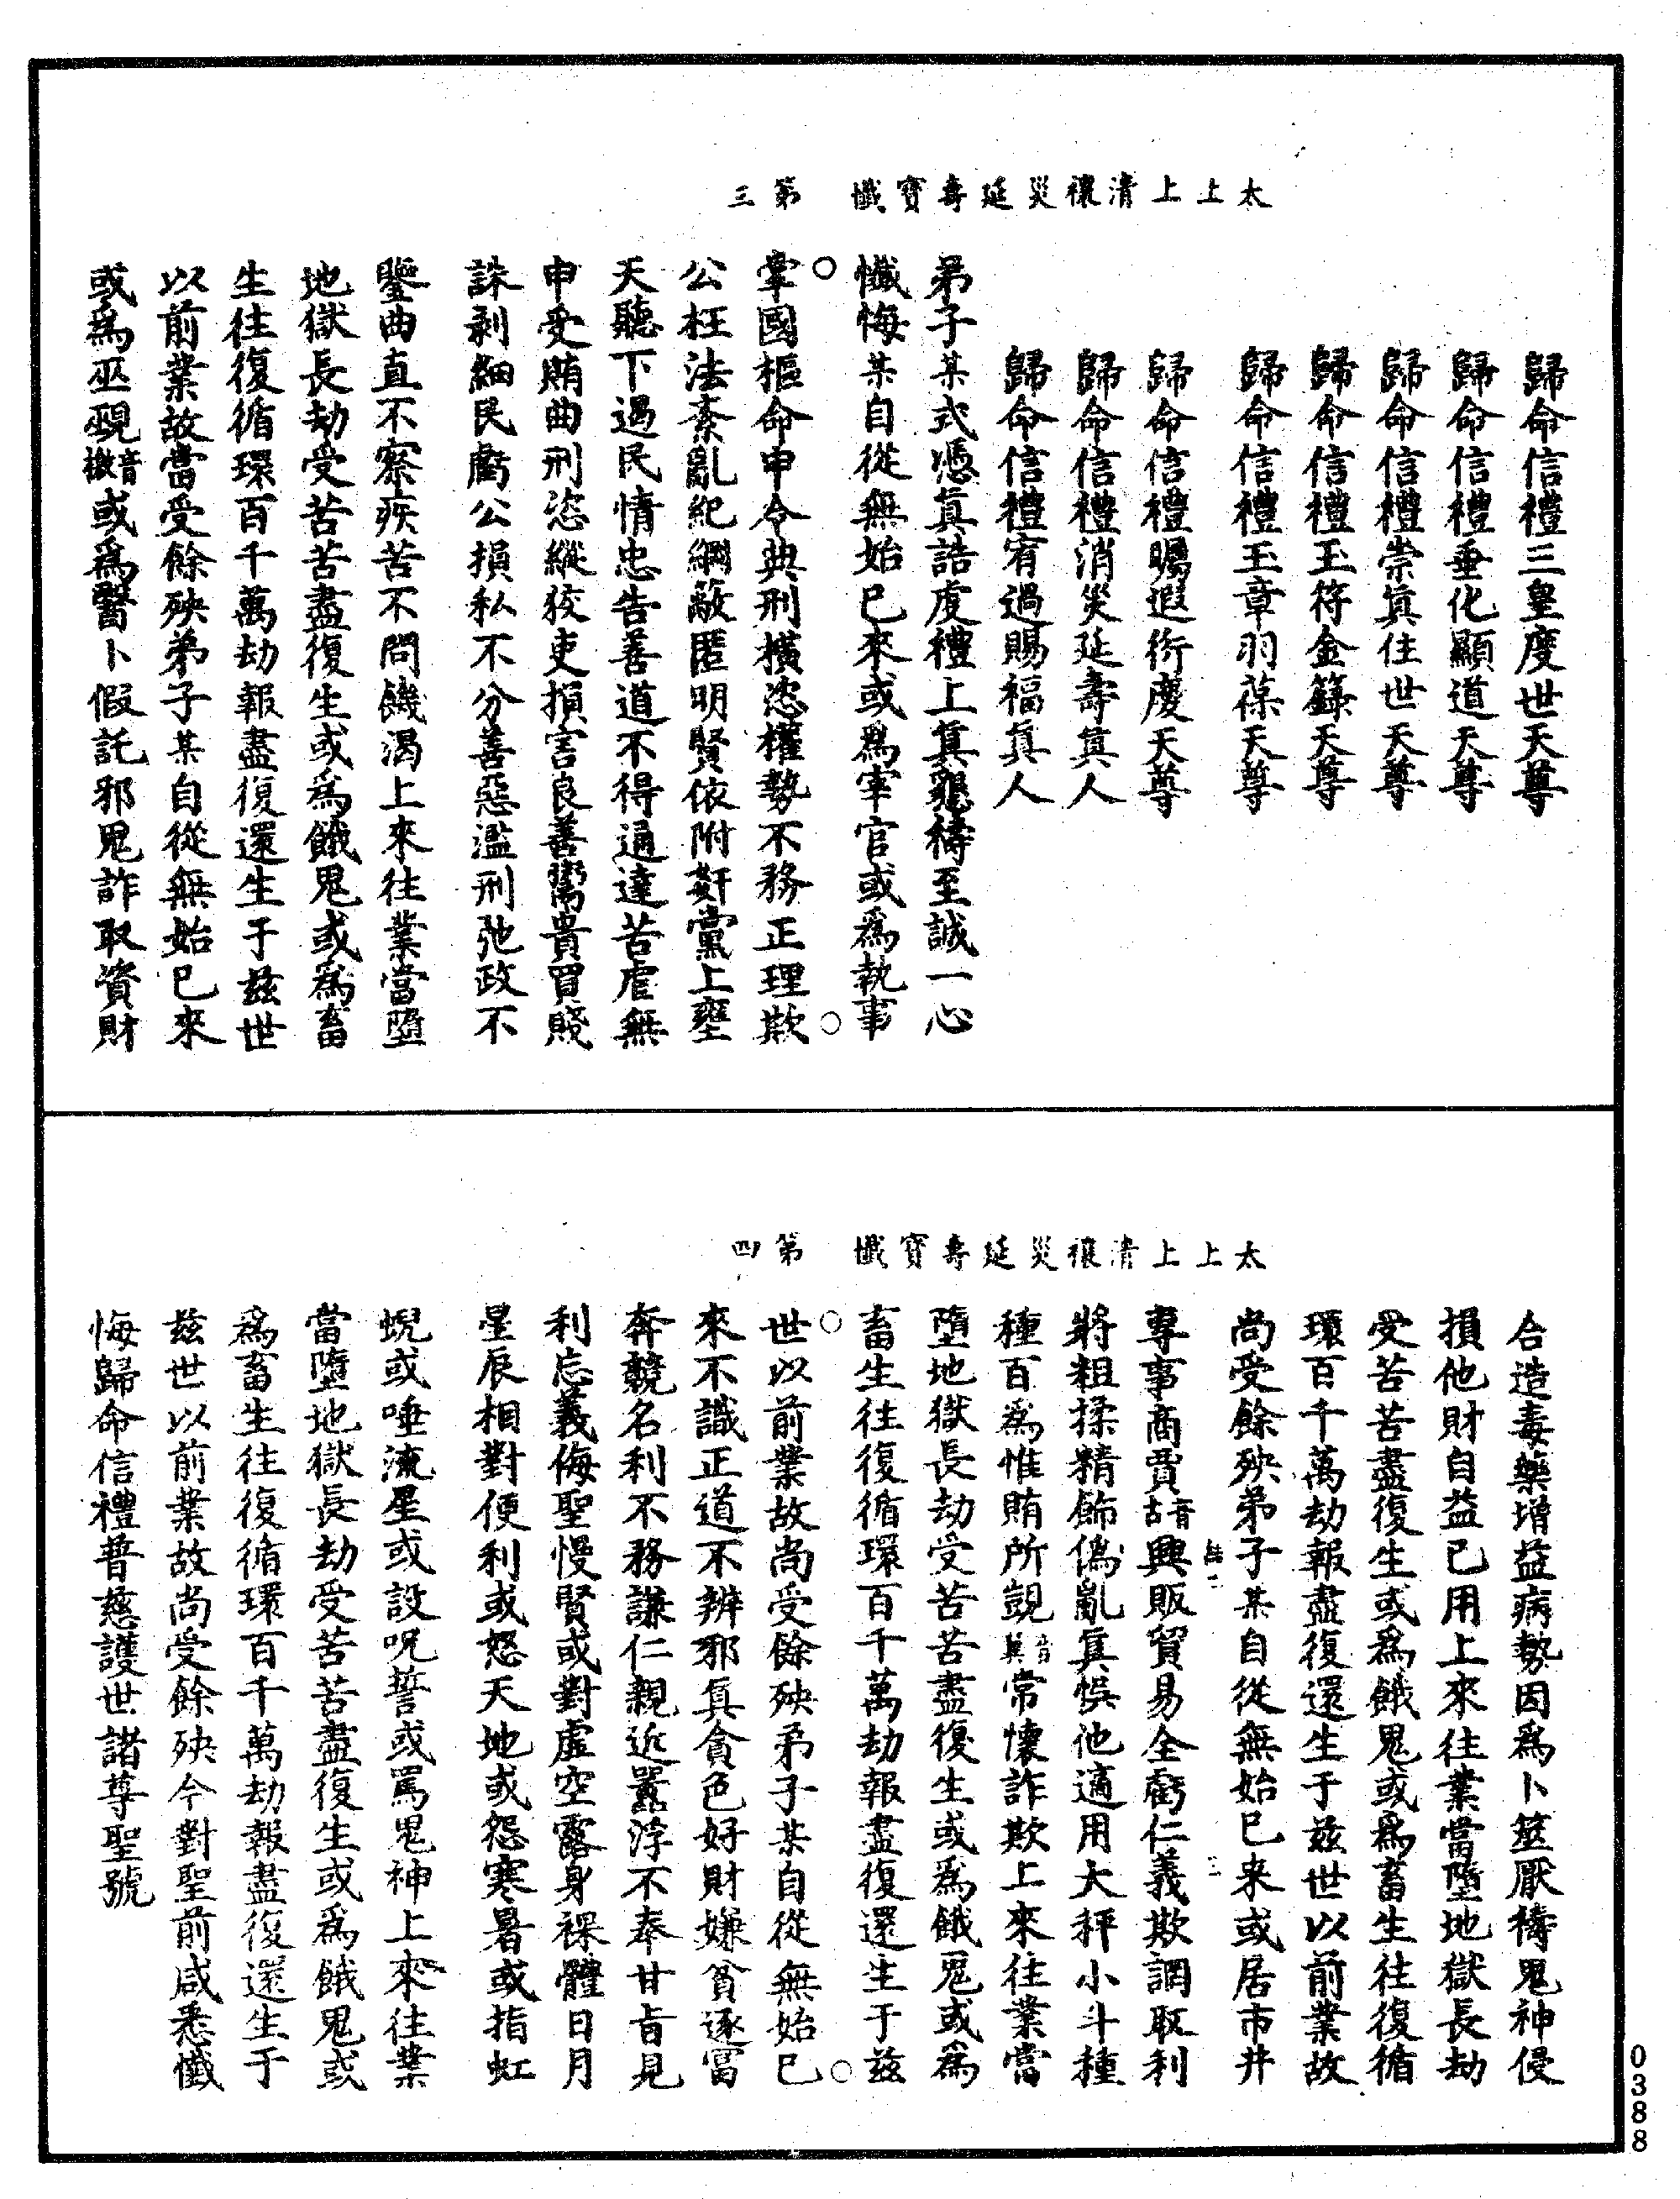 太上上清禳災延壽寶懺　第三
歸命信禮三皇度世天尊
歸命信禮垂化顯道天尊
歸命信禮崇眞住世天尊
歸命信禮玉符金籙天尊
歸命信禮玉章羽葆天尊
歸命信禮賜遐衍慶天尊
歸命信禮消災延壽眞人
歸命信禮宥過賜福眞人
弟子某式憑眞誥虔禮上眞懇禱至誠一心
懺悔某自從無始已來或爲宰官或爲執事
○掌國樞命申令典刑擅恣權勢不務正理欺○
公枉法紊亂紀綱蔽匿明賢依附奸黨上壅
天聽下遏民情忠告善道不得通達苦虐無
申受賄曲刑恣縱狡吏損害良善鬻貴買賤
誅剥細民虧公損私不分善惡濫刑弛政不
鑒曲直不察疾苦不問饑渴上來往業當墮
地獄長劫受苦苦盡復生或爲餓鬼或爲畜
生往復循環百千萬劫報盡復還生于茲世
以前業故當受餘殃弟子某自從無始已來
或爲巫覡音檄或爲醫卜假託邪鬼詐取資財
太上上清禳災延壽寶懺　第四
合造毒藥增益病勢因爲卜筮厭禱鬼神侵
損他財自益已用上來往業當墮地獄長劫
受苦苦盡復生或爲餓鬼或爲畜生往復循
環百千萬劫報盡復還生于茲世以前業故
尚受餘殃弟子某自從無始已来或居市井
專事商賈音古興販貿易全虧仁義欺誷取利
將粗揉精飾僞亂眞悞他適用大秤小斗種
種百爲惟賄所覬音冀常懷詐欺上來往業當
墮地獄長劫受苦苦盡復生或爲餓鬼或爲
畜生往復循環百千萬劫報盡復還生于茲
○世以前業故尚受餘殃弟子某自從無始已○
來不識正道不辨邪眞貪色好財嫌貧逐富
奔競名利不務謙仁親近囂浮不奉甘旨見
利忘義侮聖慢賢或對虛空露身裸體日月
星辰相對便利或怒天地或怨寒暑或指虹
蜺或唾流星或設呪誓或罵鬼神上來往業
當墮地獄長劫受苦苦盡復生或爲餓鬼或
爲畜生往復循環百千萬劫報盡復還生于
茲世以前業故尚受餘殃今對聖前咸悉懺
悔歸命信禮普慈護世諸尊聖號
0388